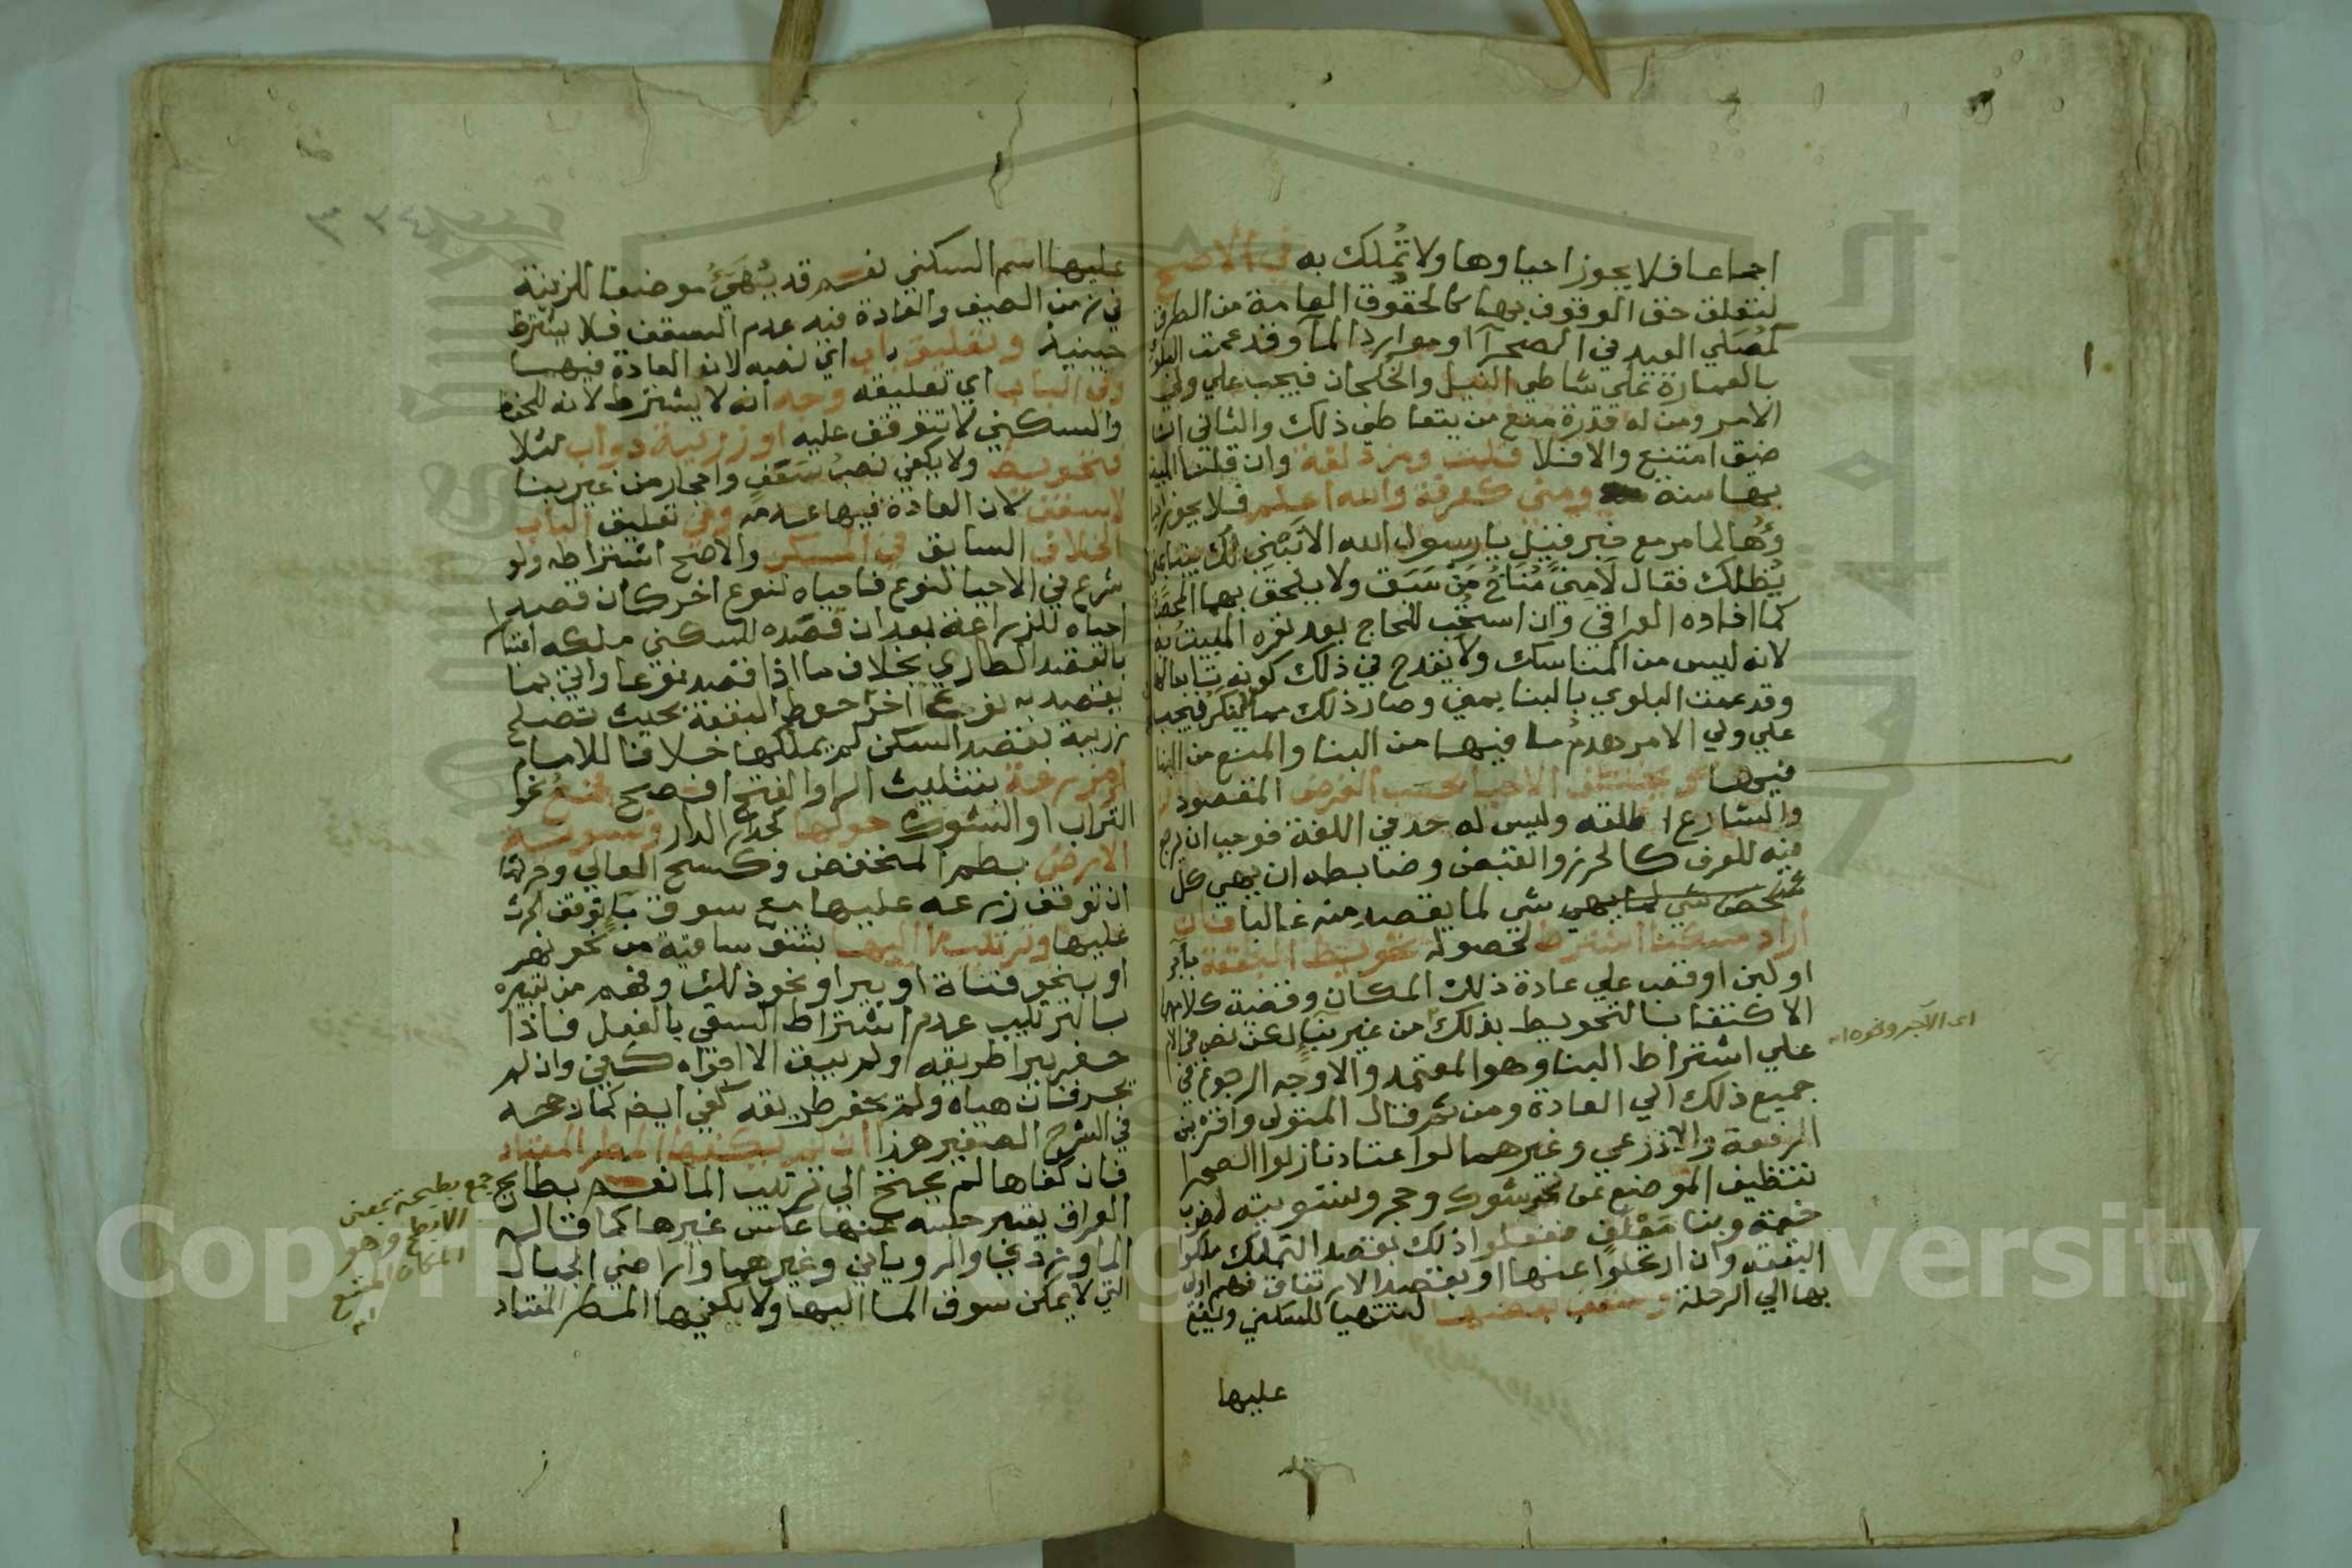 اجماعا فلا يجوز احياوها ولا تُملك به في الاصح
لتعلق حق الوقوف بها كالحقوق العامة من الطرق
كمُصَلي العيد في الصحرآ وموارد المآ وقد عمت البلوي
بالعمارة علي شاطي النيل والخلجان فيجب علي ولي
الامر ومن له قدرة منع من يتعاطي ذلك والثاني ان
ضيق امتنع والا فلا قلت ومزدلفة وان قلنا المبيت
بها سنة ومني كعرفة والله اعلم فلا يجوز احيا
وُها لما مر مع خبر قيل يا رسول الله الا نَبْنِي لك بيتا بمني
يُظلك فقال لا مِنيً مُنَاخُ مَنْ سَبَق ولا يلحق بهما المحصَّب
كما افاده العراقي وان استحُب للحاج بعد نفره المبيتُ به
لانه ليس من المناسك ولا يقدح في ذلك كونه تابعا لها
وقد عمت البلوي بالبنا بمني وصار ذلك مما لا ينكر فيجب
علي ولي الامر هدمُ ما فيها من البنا والمنع من البنا
فيها ويختلف الاحيا بحسب الغرض المقصود
والشارع اطلقه وليس له حد في اللغة فوجب ان يرجع
فيه للعرف كالحرز والقبض وضابطه ان يهي كل
شخص شي لما يهي شي لما يقصد منه غالبا فان
اراد مسكنا اشترط لحصوله تحويط البقعة بآجر
او لبن او قصب علي عادة ذلك المكان وقضية كلامه
الاكتفا بالتحويط بذلك من غير بنآء لكن نص في الام
علي اشتراط البنا وهو المعتمد والاوجه الرجوع في
جميع ذلك الي العادة ومن ثم قال المتولي واقره ابن
الرفعة والاذرعي وغيرهما لو اعتاد نازلوا الصحرا
تنظيف الموضع عن نحو شوك وحجر وتسويته لضرب
خيمة وبنا مَعْلَفٍ ففعلوا ذلك بقصد التملك ملكوا
البقعة وان ارتحلوا عنها او بقصد الارتفاق فهم اولي
بها الي الرحلة وسقف بعضها لتتهيا للسكني ويقع
عليها
اي الآجر ونحوه اه
عليها اسم السكني نعم قد يُهَيَّئُ موضعا للنزهة
في زمن الصيف والعادة فيه عدم السقف فلا يشترط
حينيذ وتعليق باب اي نصبه لان العادة فيهما
وفي الباب اي تعليقه وجه انه لا يشترط لانه للحفظ
والسكني لا تتوقف عليه او زريبة دواب مثلا
فتحويط ولا يكفي نصبُ سَعَفٍ واحجار من غير بنا
لا سقف لان العادة فيها عدمه وفي تعليق الباب
الخلاف السابق في المسكن والاصح اشتراطه ولو
شرع في الاحيا لنوع فاحياه لنوع اخر كان قصد
احياه للزراعة بعد ان قصده للسكني ملكه اعتبارا
بالقصد الطاري بخلاف ما اذا قصد نوعا واتي بما
يقصد به نوع اخر كان حوط البقعة بحيث تصلح
زريبة بقصد السكن لم يملكها خلافا للامام
او مزرعة بتثليث الرا والفتح افصح فجمعُ نحوِ
التراب او الشوك حولها كجدار الدار وتسوية
الارض بطم المنخفض وكسح العالي وحرثها
ان توقف زرعه عليها مع سوق مآء توقف الحرث
عليها وترتيب ما اليها بشق ساقية من نحو نهر
او بنحو قناة او بير او نحو ذلك وفهم من تعبيره
بالترتيب عدم اشتراط السقي بالفعل فاذا
حفر بيرا طريقه ولم يبق الا اجراه كفي وان لم
يجر فان هياه ولم يحفر طريقه كفي ايضا كما رجحه
في الشرح الصغير هذا ان لم يكفها المطر المعتاد
فان كفاها لم يحتج الي ترتيب الما نعم بطايح
العراق يعتبر حبسه عنها عكس غيرها كما قاله
الماوردي والروياني وغيرهما واراضي الجبال
التي لا يمكن سوق الما اليها ولا يكفيها المطر المعتاد
جمع بطيحة بمعني
الابطح وهو
المكان المتسع
اه
Copyright © King Saud University